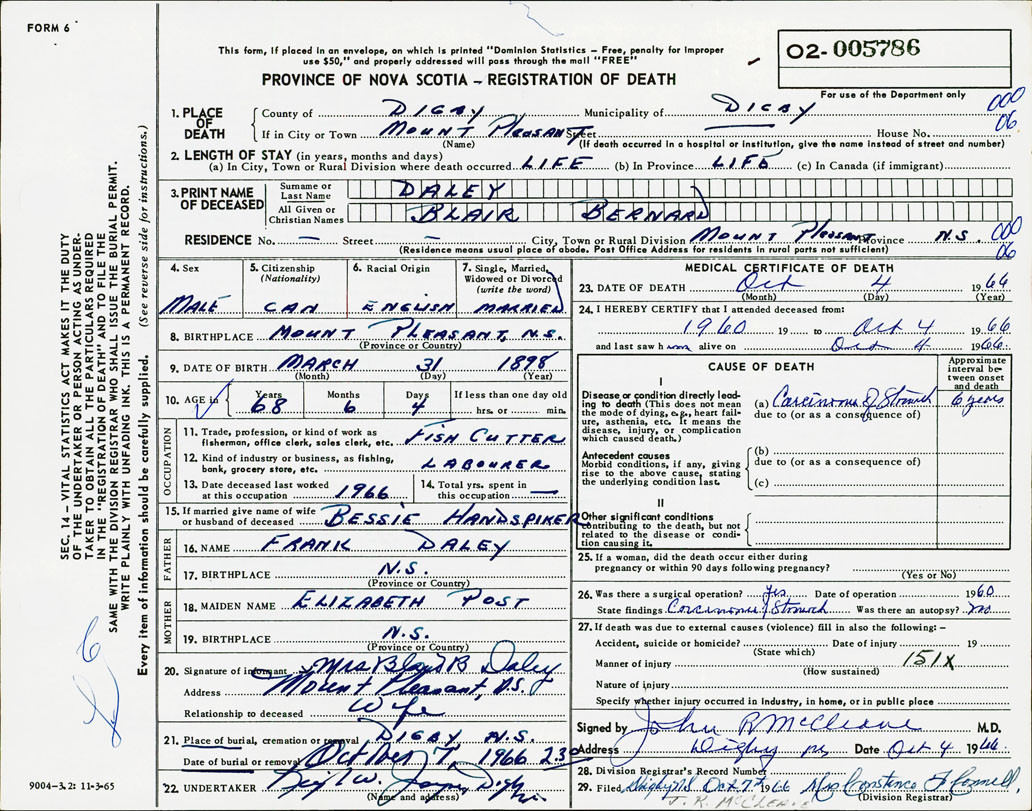 FORM 6
This form, if placed in an envelope, on which is printed "Dominion Statistics – Free, penalty for improper
use $50," and properly addressed will pass through the mail "FREE"
O2- 005786
PROVINCE OF NOVA SCOTIA – REGISTRATION OF DEATH
For use of the Department only
000
06
1. PLACE OF DEATH
County of DIGBY Municipality of DIGBY
If in City or Town MOUNT PLEASANT Street House No.
(Name) (If death occurred in a hospital or institution, give the name instead of street and number)
2. LENGTH OF STAY (in years, months and days)
(a) In City, Town or Rural Division where death occurred LIFE (b) In Province LIFE (c) In Canada (if immigrant)
3. PRINT NAME OF DECEASED
Surname or Last Name DALEY
All Given or Christian Names BLAIR BERNARD
RESIDENCE No. — Street — City, Town or Rural Division MOUNT PLEASANT Province N.S.
000
06
(Residence means usual place of abode. Post Office Address for residents in rural parts not sufficient)
4. Sex MALE
5. Citizenship (Nationality) CAN
6. Racial Origin ENGLISH
7. Single, Married, Widowed or Divorced (write the word) MARRIED
8. BIRTHPLACE MOUNT PLEASANT, N.S.
(Province or Country)
9. DATE OF BIRTH MARCH 31 1898
(Month) (Day) (Year)
10. AGE in Years 68 Months 6 Days 4 If less than one day old
hrs. or min.
OCCUPATION
11. Trade, profession, or kind of work as
fisherman, office clerk, sales clerk, etc. FISH CUTTER
12. Kind of industry or business, as fishing,
bank, grocery store, etc. LABOURER
13. Date deceased last worked
at this occupation 1966
14. Total yrs. spent in
this occupation —
15. If married give name of wife
or husband of deceased BESSIE HANDSPIKER
FATHER
16. NAME FRANK DALEY
17. BIRTHPLACE N.S.
(Province or Country)
MOTHER
18. MAIDEN NAME ELIZABETH POST
19. BIRTHPLACE N.S.
(Province or Country)
20. Signature of informant Mrs Blair B Daley
Address Mount Pleasant, N.S.
Relationship to deceased Wife
21. Place of burial, cremation or removal DIGBY N.S.
Date of burial or removal October 7, 1966 2.30
22. UNDERTAKER
(Name and address)
MEDICAL CERTIFICATE OF DEATH
23. DATE OF DEATH Oct 4 1966
(Month) (Day) (Year)
24. I HEREBY CERTIFY that I attended deceased from:
1960 19 to Oct 4 1966
and last saw him alive on Oct 4 1966
CAUSE OF DEATH
Approximate interval between onset and death
I
Disease or condition directly leading to death (This does not mean the mode of dying, e.g., heart failure, asthenia, etc. It means the disease, injury, or complication which caused death.)
(a) Carcinoma of Stomach 6 years
due to (or as a consequence of)
Antecedent causes
Morbid conditions, if any, giving rise to the above cause, stating the underlying condition last.
(b)
due to (or as a consequence of)
(c)
II
Other significant conditions
contributing to the death, but not related to the disease or condition causing it.
25. If a woman, did the death occur either during
pregnancy or within 90 days following pregnancy?
(Yes or No)
26. Was there a surgical operation? yes Date of operation 1960
State findings Carcinoma of Stomach Was there an autopsy? no
27. If death was due to external causes (violence) fill in also the following: –
Accident, suicide or homicide? Date of injury 19
(State which)
Manner of injury 151X
(How sustained)
Nature of injury
Specify whether injury occurred in industry, in home, or in public place
Signed by John R McCleave M.D.
Address Digby NS Date Oct 4 1966
28. Division Registrar's Record Number
29. Filed Digby NS Oct 7 1966 Mrs Constance F Connell
(Division Registrar)
J. R. McCLEAVE
SEC. 14 – VITAL STATISTICS ACT MAKES IT THE DUTY
OF THE UNDERTAKER OR PERSON ACTING AS UNDER-
TAKER TO OBTAIN ALL THE PARTICULARS REQUIRED
IN THE "REGISTRATION OF DEATH" AND TO FILE THE
SAME WITH THE DIVISION REGISTRAR WHO SHALL ISSUE THE BURIAL PERMIT.
WRITE PLAINLY WITH UNFADING INK. THIS IS A PERMANENT RECORD.
Every item of information should be carefully supplied. (See reverse side for instructions.)
9004–3.2: 11-3-65